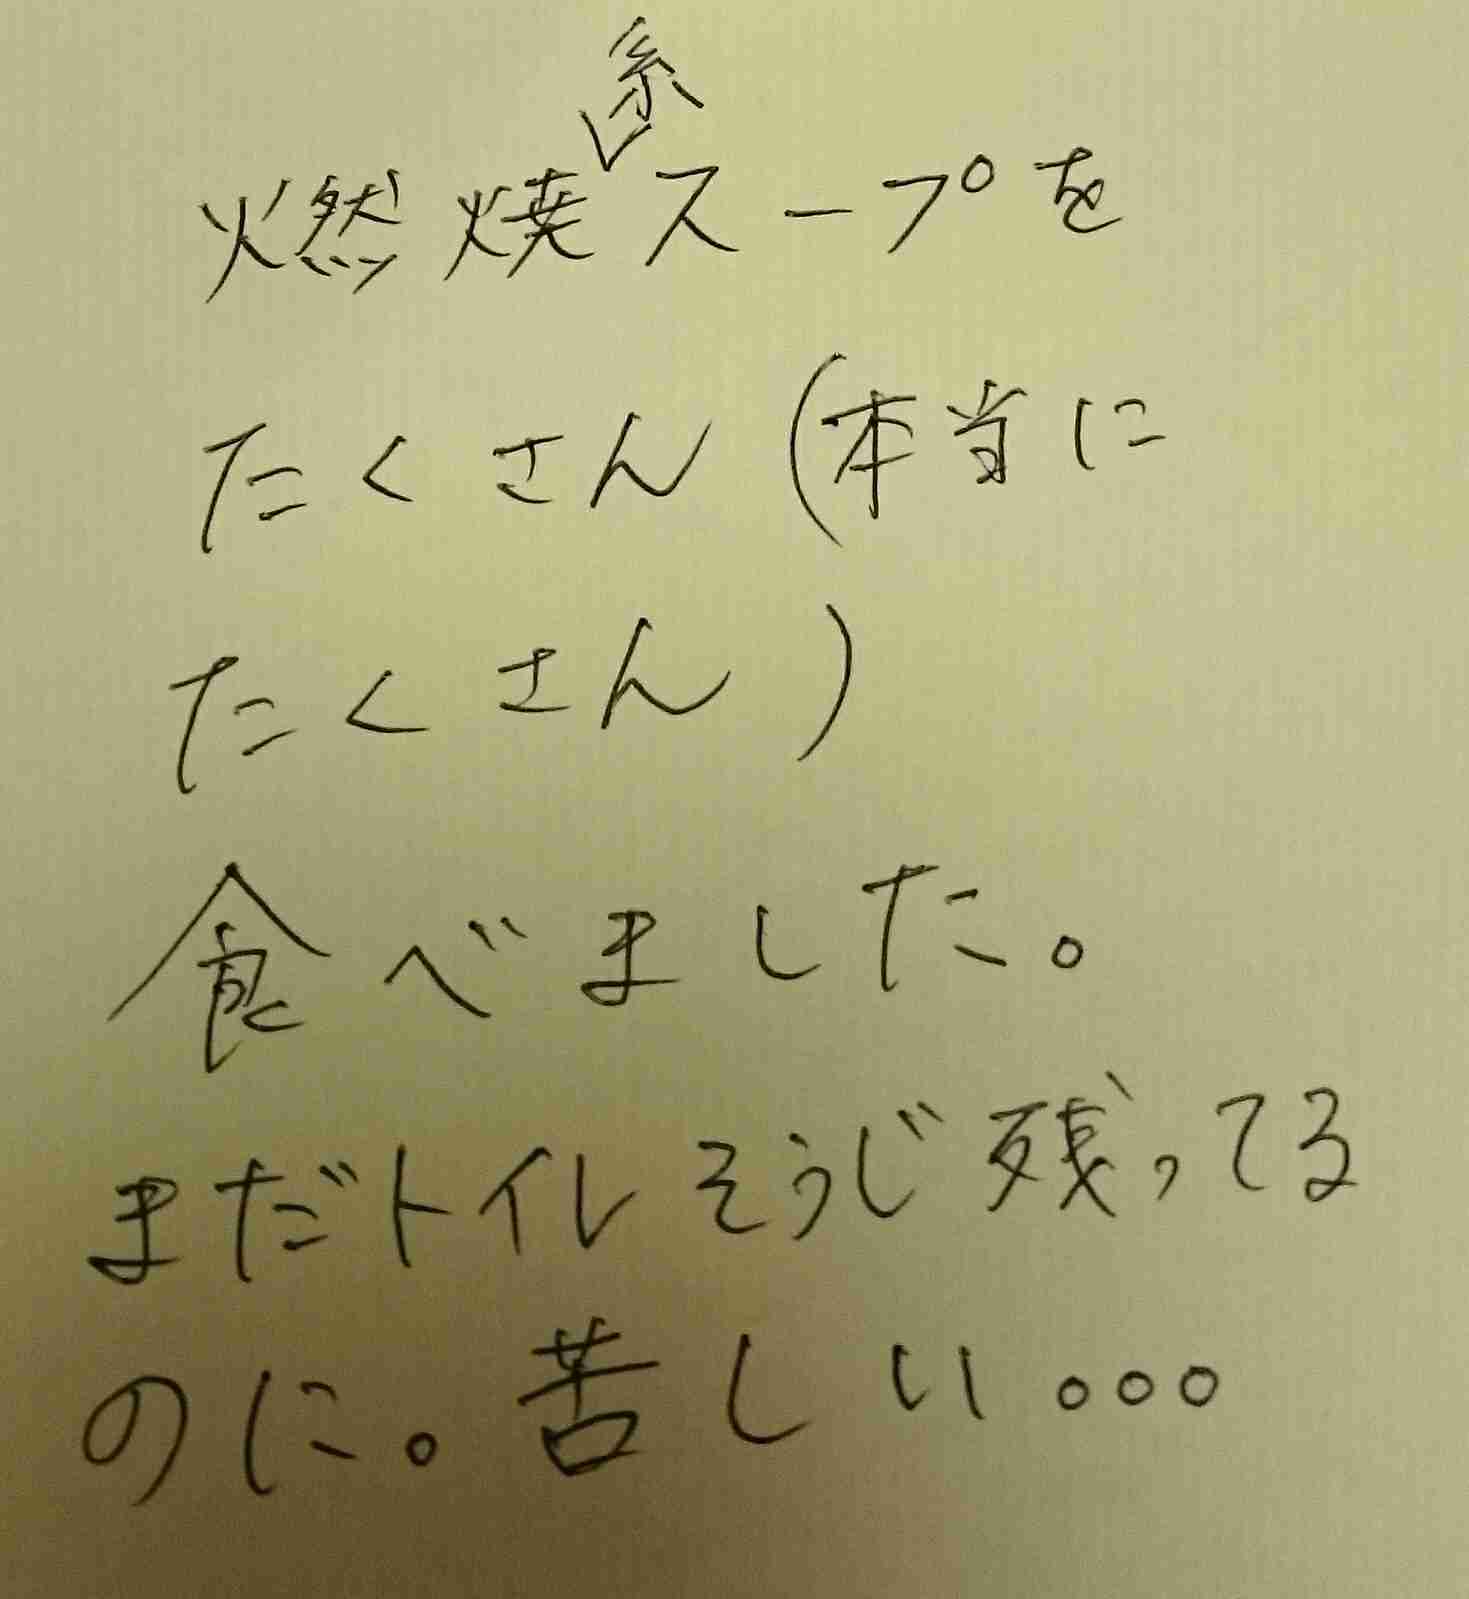 燃焼系スープを
たくさん(本当に
たくさん)
食べました。
まだトイレそうじ残ってる
のに。苦しい。。。